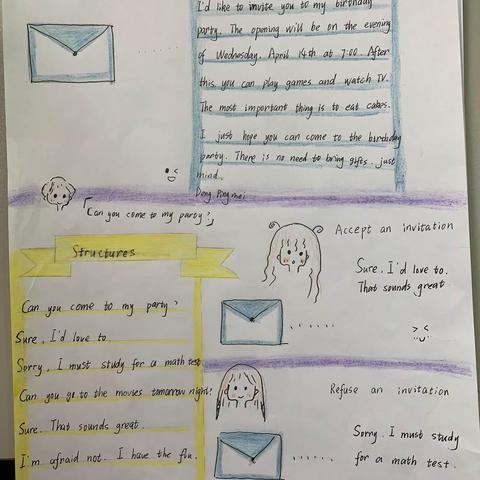 I'd like to invite you to my birthday
party. The opening will be on the evening
of Wednesday. April 14th at 7:00. After
this you can play games and watch TV.
The most important thing is to eat cakes.
I just hope you can come to the birthday
party. There is no need to bring gifts. just
mind.
Dong Ping mei
「Can you come to my party?」
Structures
Can you come to my party?
Sure, I'd love to.
Sorry, I must study for a math test
Can you go to the movies tomorrow night?
Sure. That sounds great.
I'm afraid not. I have the flu.
Accept an invitation
Sure, I'd love to.
That sounds great
Refuse an invitation
Sorry. I must study
for a math test.